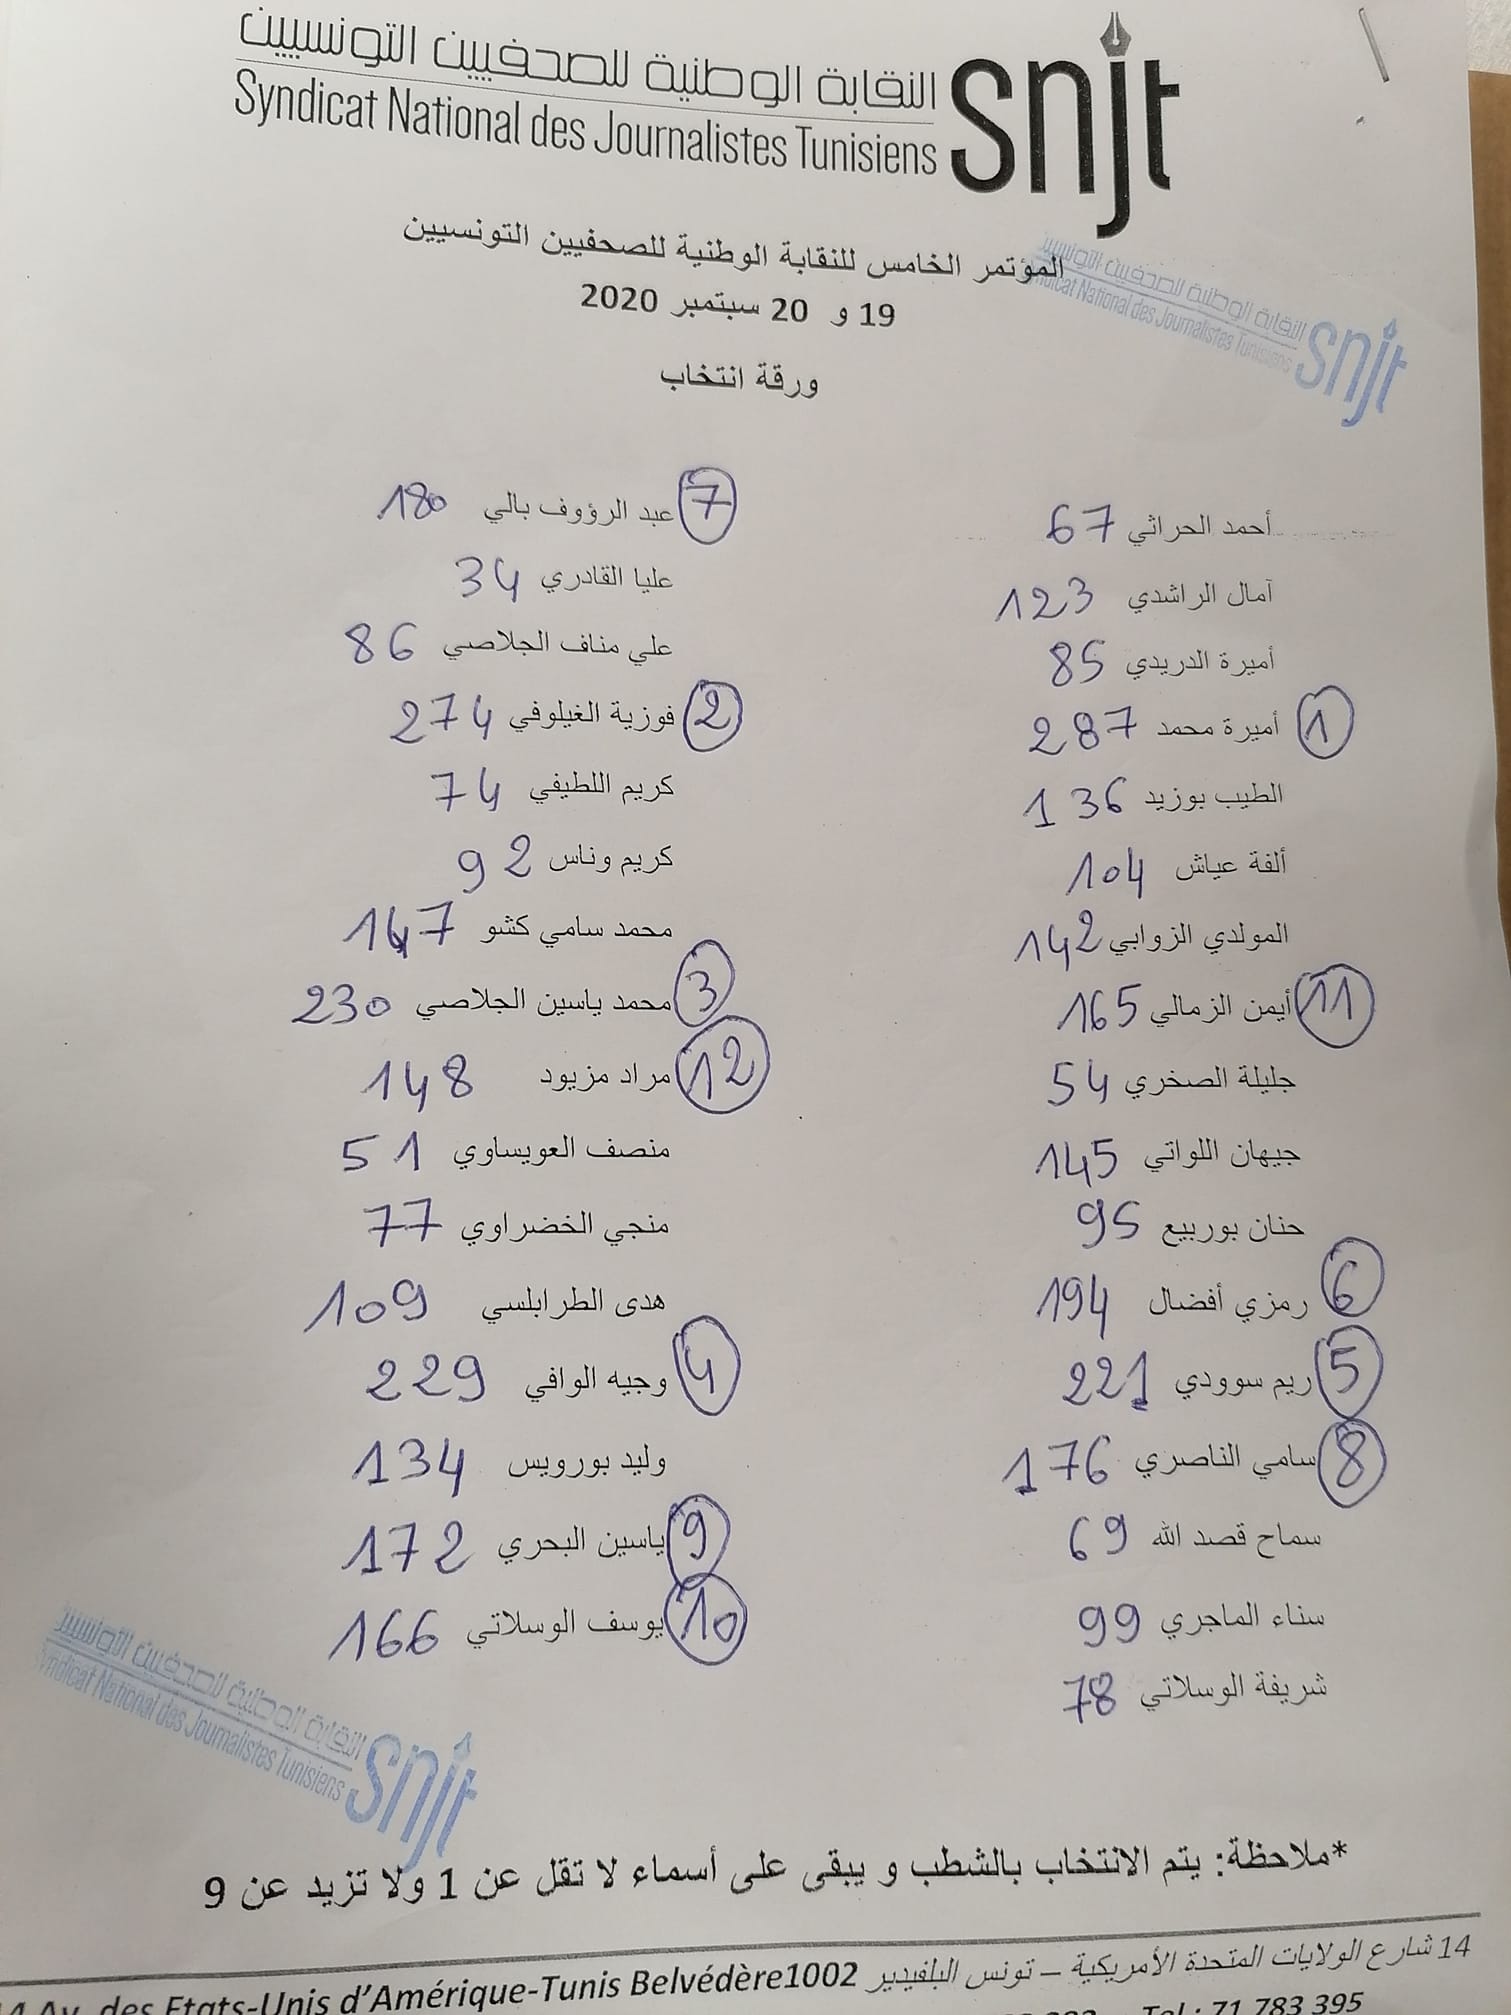 النقابة الوطنية للصحفيين التونسيين
Syndicat National des Journalistes Tunisiens
snjt
المؤتمر الخامس للنقابة الوطنية للصحفيين التونسيين
النقابة الوطنية للصحفيين التونسيين
Syndicat National des Journalistes Tunisiens
snjt
19 و 20 سبتمبر 2020
ورقة انتخاب
أحمد الحراثي 67
آمال الراشدي 123
أميرة الدريدي 85
1 أميرة محمد 287
الطيب بوزيد 136
ألفة عياش 104
المولدي الزوابي 142
11 أيمن الزمالي 165
جليلة الصخري 54
جيهان اللواتي 145
حنان بوربيع 95
6 رمزي أفضال 194
5 ريم سوودي 221
8 سامي الناصري 176
سماح قصد الله 69
سناء الماجري 99
شريفة الوسلاتي 78
7 عبد الرؤوف بالي 180
عليا القادري 34
علي مناف الجلاصي 86
2 فوزية الغيلوفي 274
كريم اللطيفي 74
كريم وناس 92
محمد سامي كشو 147
3 محمد ياسين الجلاصي 230
12 مراد مزيود 148
منصف العويساوي 51
منجي الخضراوي 77
هدى الطرابلسي 109
4 وجيه الوافي 229
وليد بورويس 134
9 ياسين البحري 172
10 يوسف الوسلاتي 166
النقابة الوطنية للصحفيين التونسيين
Syndicat National des Journalistes Tunisiens
snjt
*ملاحظة: يتم الانتخاب بالشطب و يبقى على أسماء لا تقل عن 1 ولا تزيد عن 9
14 شارع الولايات المتحدة الأمريكية – تونس البلفيدير 1002
Av. des Etats-Unis d'Amérique-Tunis Belvédère
Tel : 71 783 395